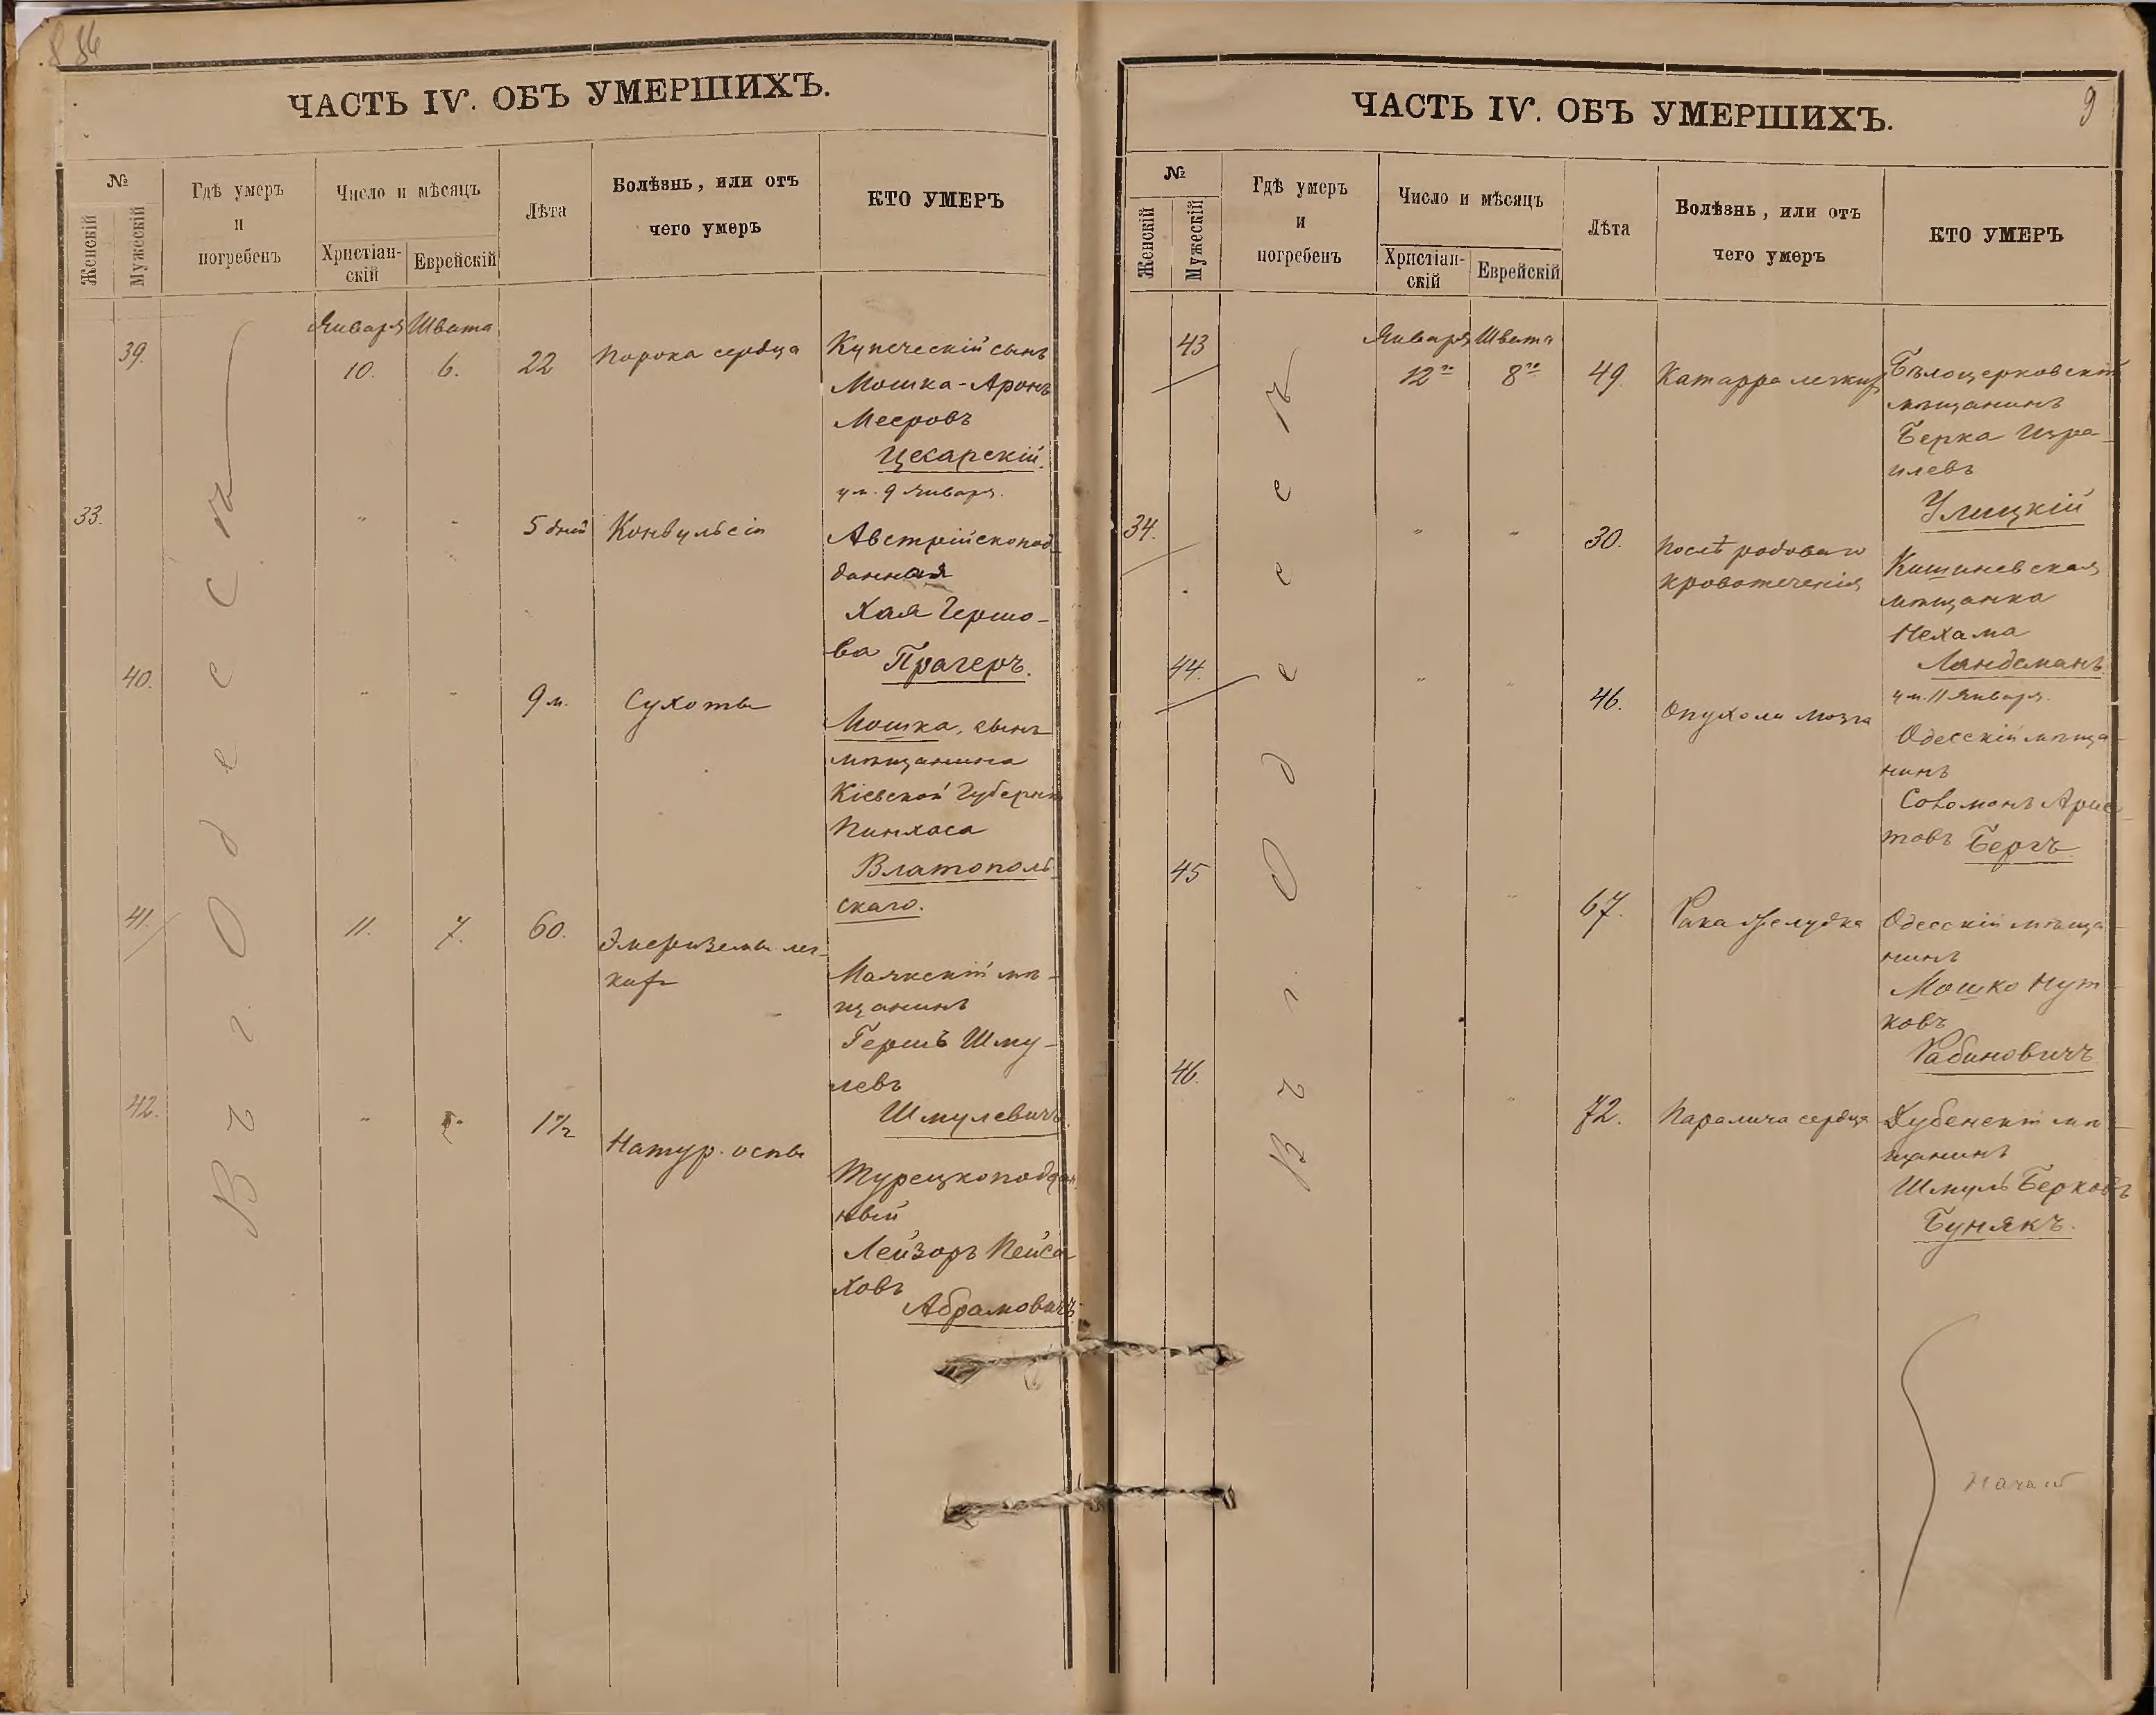 ЧАСТЬ IV. ОБЪ УМЕРШИХЪ.
№
Женскій
Мужескій
Гдѣ умеръ
и
погребенъ
Число и мѣсяцъ
Христіан-
скій
Еврейскій
Лѣта
Болѣзнь, или отъ
чего умеръ
КТО УМЕРЪ
Въ г. Одессѣ
Января Швата
39. 10. 6. 22 Порока сердца
Купеческій сынъ
Мошка-Аронъ
Мееровъ
Цекарскій.
ум. 9 Января.
33. " " 5 дней Конвульсіи
Австрійскопод-
данная
Хая Гершо-
ва Прагеръ.
40. " " 9 м. Сухоты
Мошка, сынъ
мѣщанина
Кіевской Губерніи
Пинхаса
Златополь-
скаго.
41. 11. 7. 60. Эмфиземы лег-
кихъ
Маякскій мѣ-
щанинъ
Гершъ Шму-
левъ
Шмулевичъ.
42. " " 1½ Натур. оспы
Турецкоподдан-
ный
Лейзоръ Пейса-
ховъ
Абрамовичъ.
ЧАСТЬ IV. ОБЪ УМЕРШИХЪ.
9
№
Женскій
Мужескій
Гдѣ умеръ
и
погребенъ
Число и мѣсяцъ
Христіан-
скій
Еврейскій
Лѣта
Болѣзнь, или отъ
чего умеръ
КТО УМЕРЪ
Въ г. Одессѣ
Января Швата
43 12го 8го 49. Катарра легкихъ
Бѣлоцерковскій
мѣщанинъ
Берка Изра-
илевъ
Улицкій
34. " " 30. Послѣ родоваго
кровотеченія
Кишиневская
мѣщанка
Нехама
Ландсманъ
ум. 11 Января.
44. " " 46. Опухоли мозга
Одесскій мѣща-
нинъ
Соломонъ Арис-
товъ Бергъ
45 " " 67. Рака желудка
Одесскій мѣща-
нинъ
Мошко Нут-
ковъ
Рабиновичъ
46. " " 72. Паралича сердца
Дубенскій мѣ-
щанинъ
Шмуль Берковъ
Бунякъ.